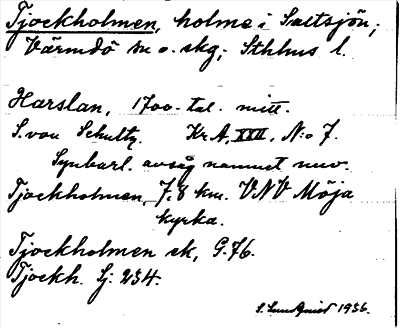 Tjockholmen, holme i Saltsjön;
Värmdö sn o. skg; Sthlms l.
Harslan, 1700-tal. mitt.
S. von Schultz. Kr A, XXII, N:o 7.
Synbarl. avsåg namnet nuv.
Tjockholmen, 7.8 km. VNV Möja
kyrka.
Tjockholmen ek, G. 76.
Tjockh. Sj: 234.
S. Lundquist 1936.